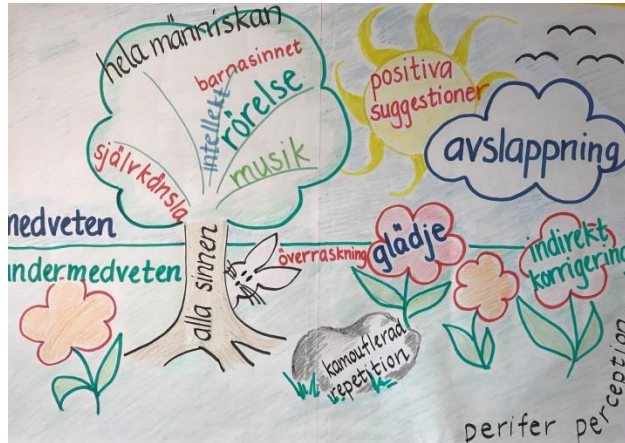 hela människan
barnasinnet
intellekt
rörelse
självkänsla
musik
positiva
suggestioner
avslappning
medveten
undermedveten
alla sinnen
överraskning
glädje
indirekt
korrigering
kamouflerad
repetition
perifer perception